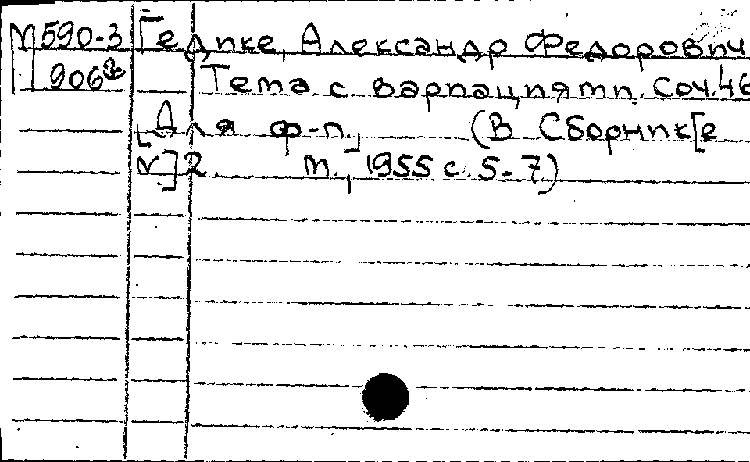 М590-3 Гедике, Александр Федорович
906 Тема с вариациями. Соч. 46
[Для ф-п.] (В Сборник[е
№] 2. М., 1955 с. 5-7)